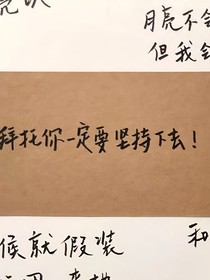 月亮不会
但我会
拜托你一定要坚持下去！
候就假装
和